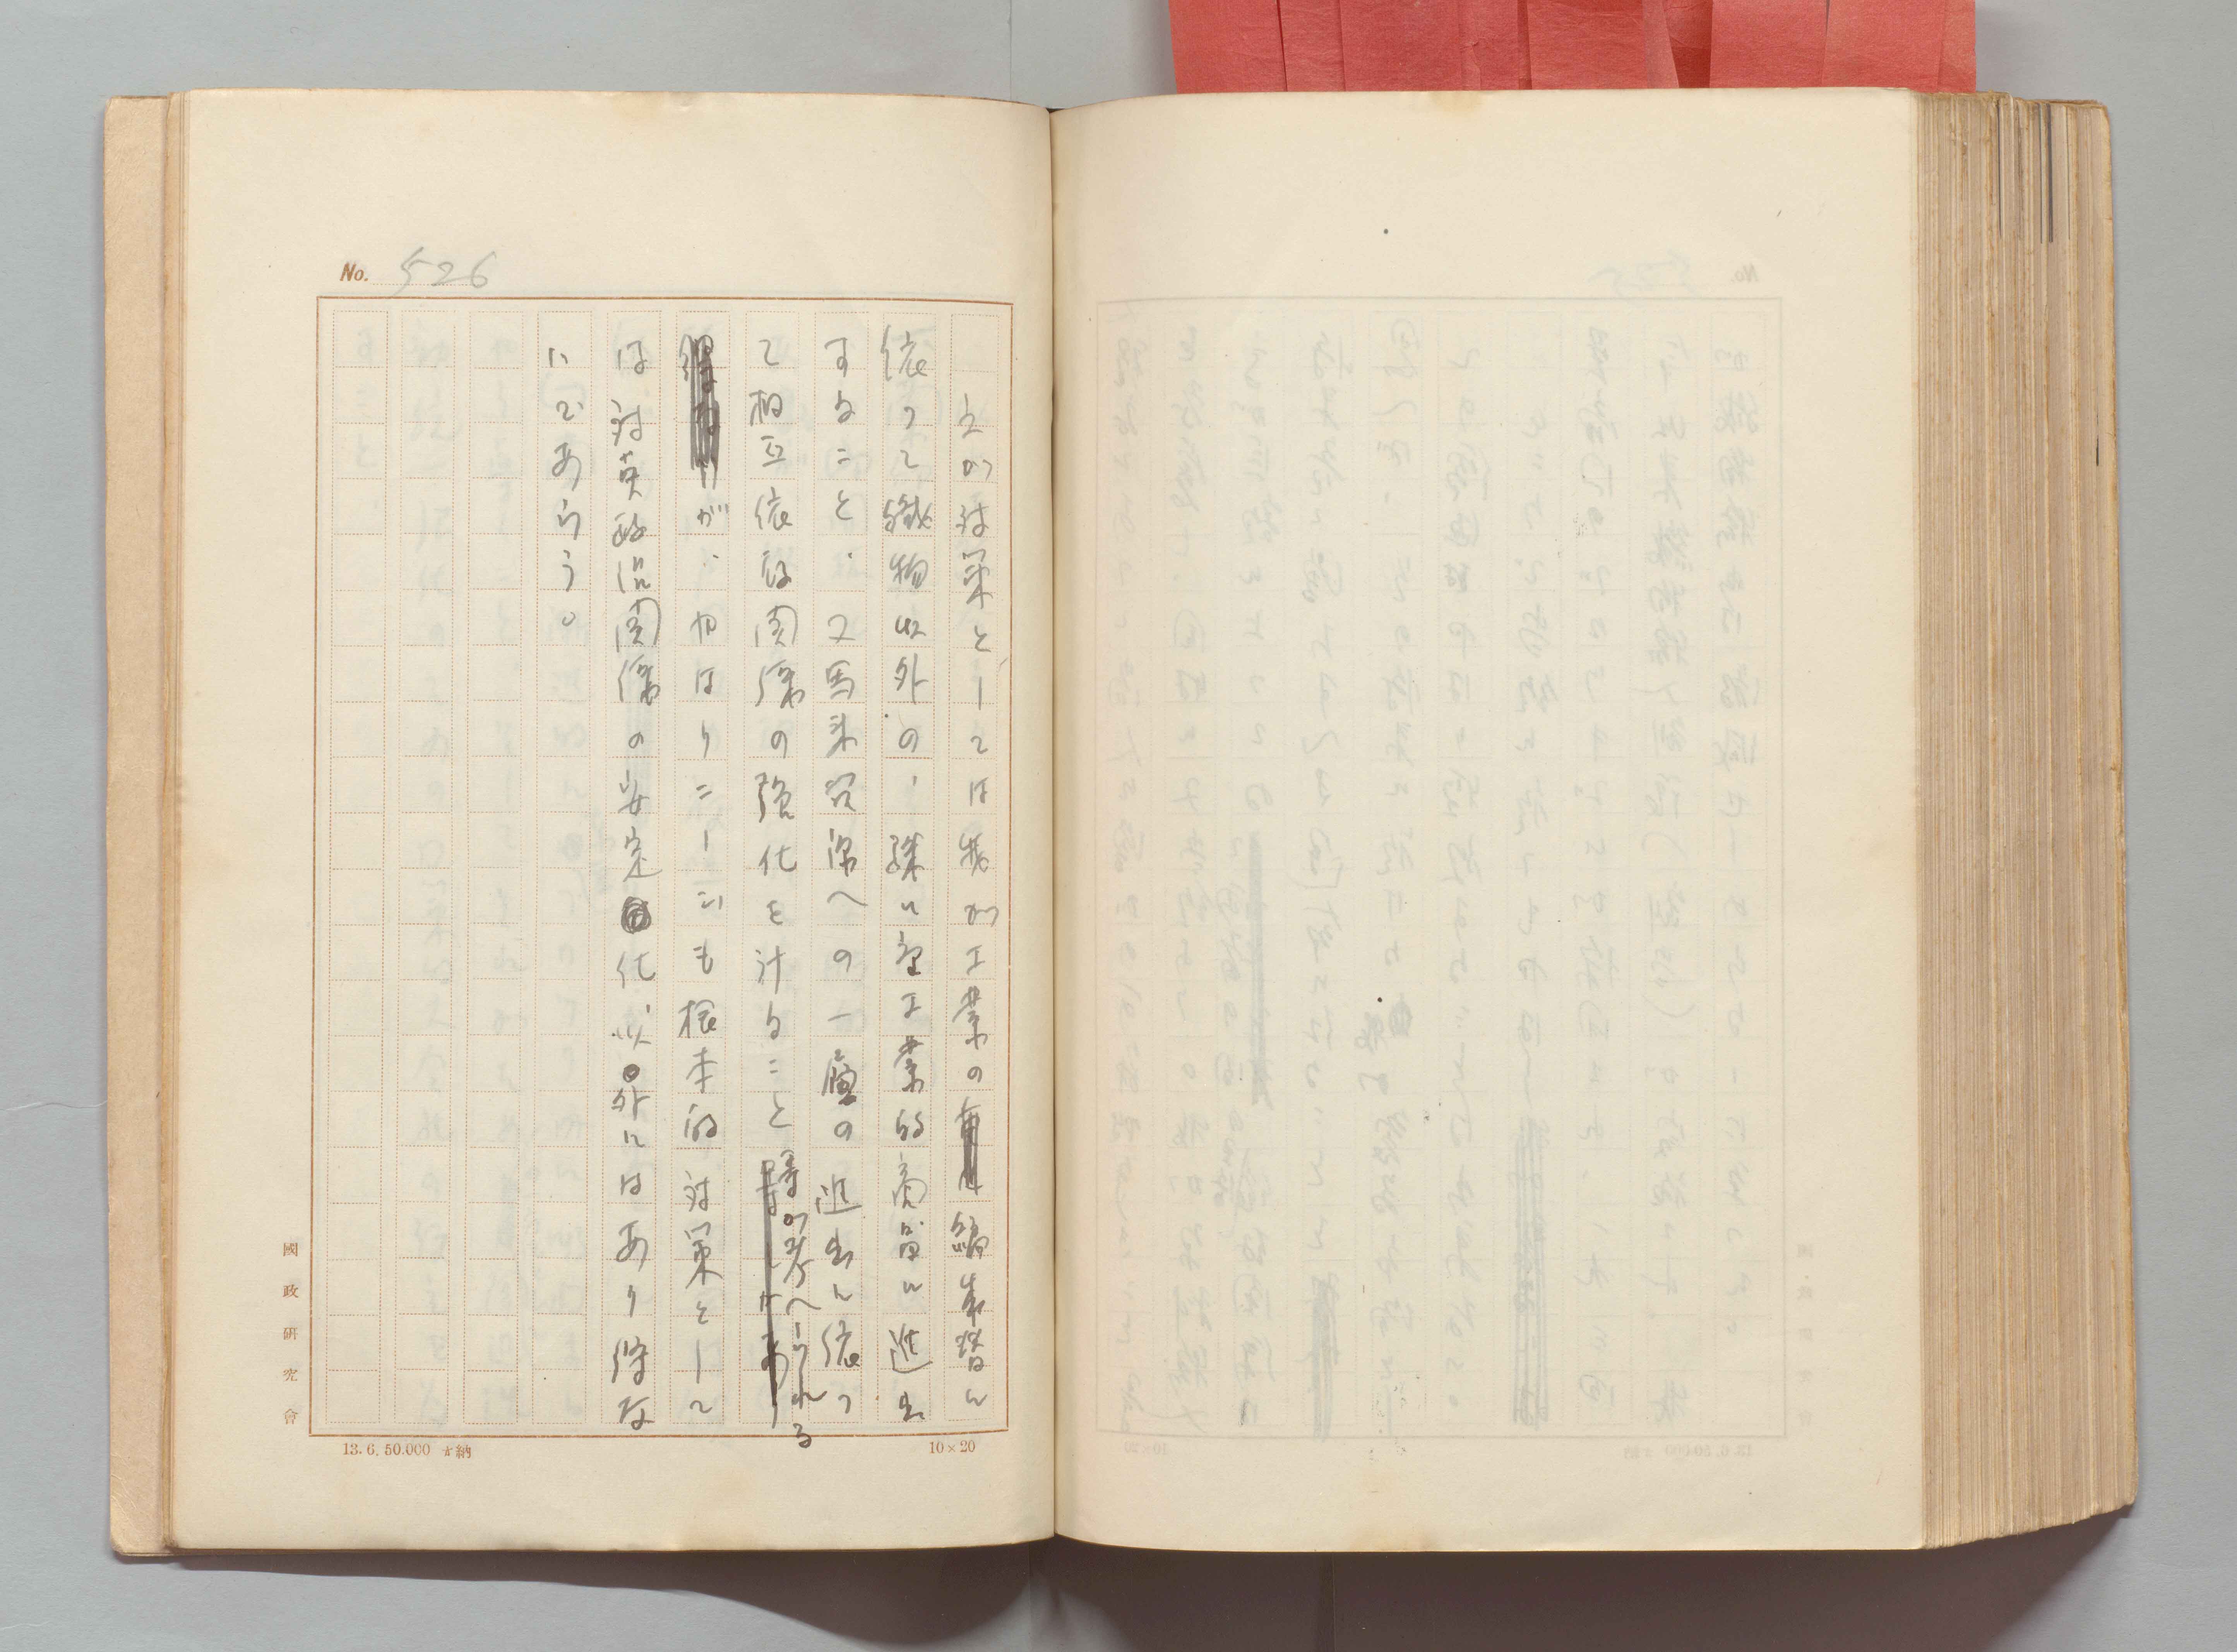 No. 526
之が対策としては我が工業の編成替に
依つて織物以外の、殊に重工業的商品に進出
すること、又馬来資源への一層の進出に依つ
て相互依存関係の強化を計ること等が考へられる
が、やはりこゝでも根本的対策として
は対英政治関係の安定化以外にはあり得な
いであらう。
國政研究會
13.6.50.000 納
10×20